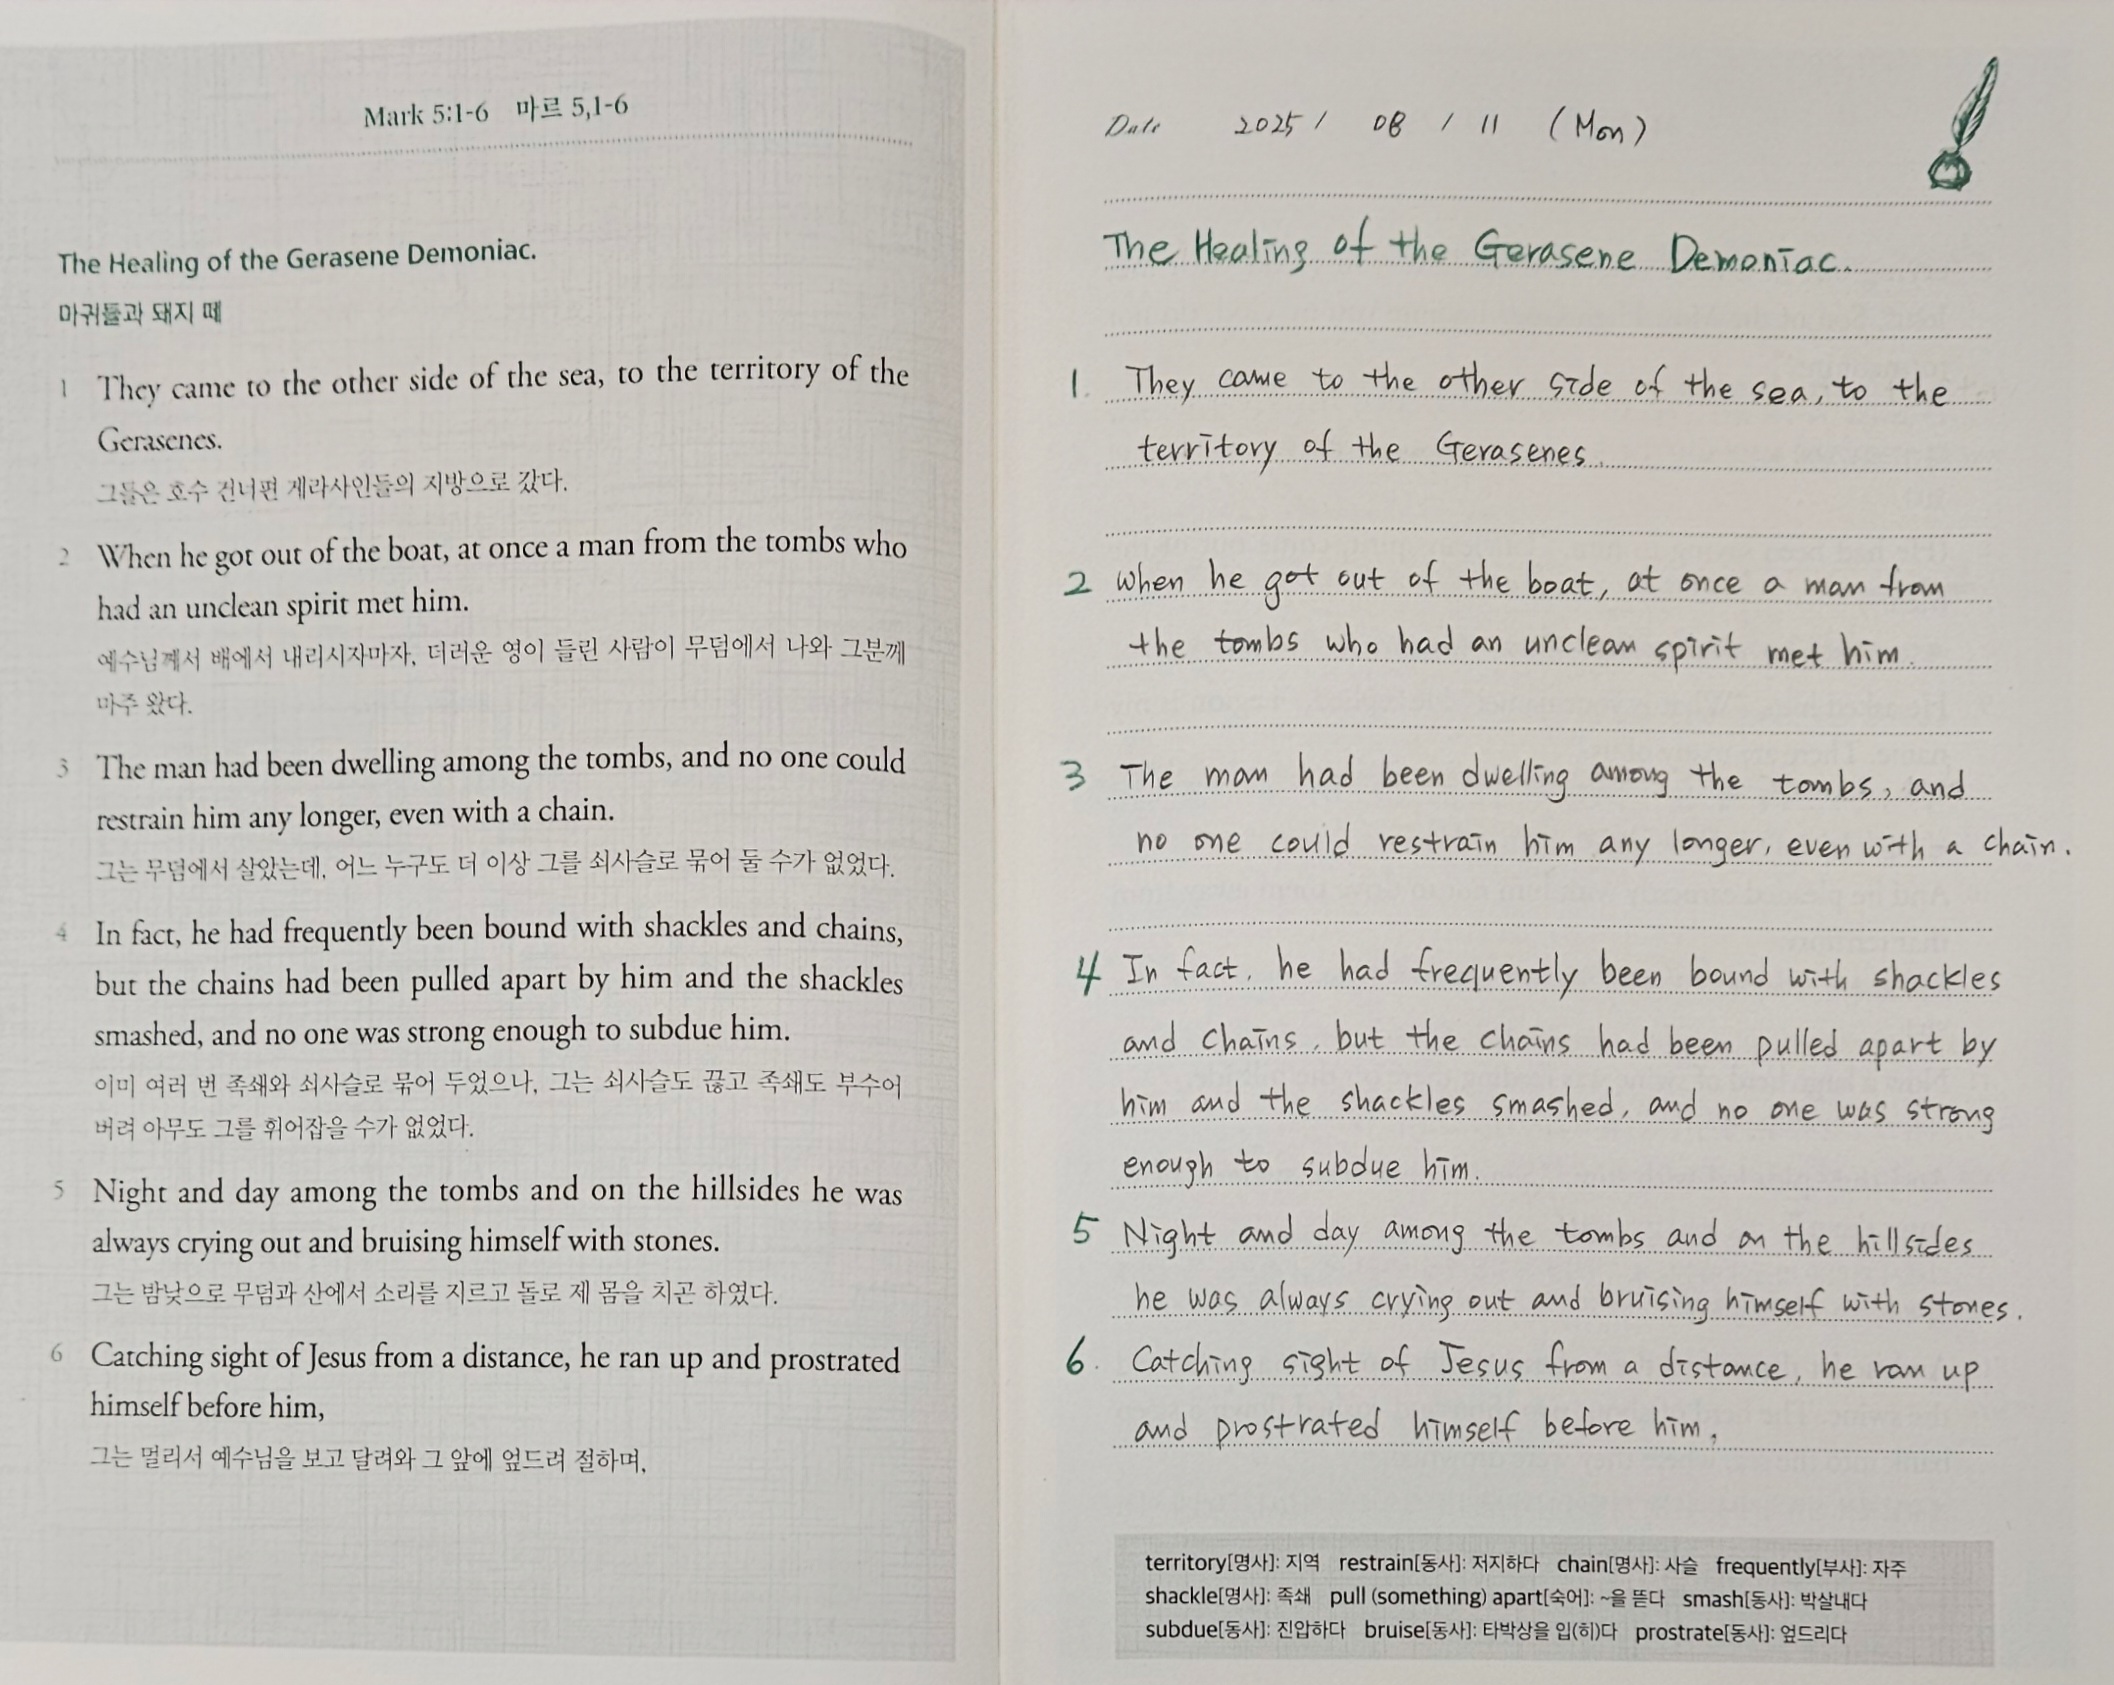 Mark 5:1-6 마르 5,1-6
The Healing of the Gerasene Demoniac.
마귀들과 돼지 떼
1 They came to the other side of the sea, to the territory of the
Gerasenes.
그들은 호수 건너편 게라사인들의 지방으로 갔다.
2 When he got out of the boat, at once a man from the tombs who
had an unclean spirit met him.
예수님께서 배에서 내리시자마자, 더러운 영이 들린 사람이 무덤에서 나와 그분께
마주 왔다.
3 The man had been dwelling among the tombs, and no one could
restrain him any longer, even with a chain.
그는 무덤에서 살았는데, 어느 누구도 더 이상 그를 쇠사슬로 묶어 둘 수가 없었다.
4 In fact, he had frequently been bound with shackles and chains,
but the chains had been pulled apart by him and the shackles
smashed, and no one was strong enough to subdue him.
이미 여러 번 족쇄와 쇠사슬로 묶어 두었으나, 그는 쇠사슬도 끊고 족쇄도 부수어
버려 아무도 그를 휘어잡을 수가 없었다.
5 Night and day among the tombs and on the hillsides he was
always crying out and bruising himself with stones.
그는 밤낮으로 무덤과 산에서 소리를 지르고 돌로 제 몸을 치곤 하였다.
6 Catching sight of Jesus from a distance, he ran up and prostrated
himself before him,
그는 멀리서 예수님을 보고 달려와 그 앞에 엎드려 절하며,
Date 2025 / 08 / 11 (Mon)
The Healing of the Gerasene Demoniac.
1. They came to the other side of the sea, to the
territory of the Gerasenes.
2 When he got out of the boat, at once a man from
the tombs who had an unclean spirit met him.
3 The man had been dwelling among the tombs, and
no one could restrain him any longer, even with a chain.
4 In fact, he had frequently been bound with shackles
and chains, but the chains had been pulled apart by
him and the shackles smashed, and no one was strong
enough to subdue him.
5 Night and day among the tombs and on the hillsides
he was always crying out and bruising himself with stones.
6. Catching sight of Jesus from a distance, he ran up
and prostrated himself before him,
territory[명사]: 지역 restrain[동사]: 저지하다 chain[명사]: 사슬 frequently[부사]: 자주
shackle[명사]: 족쇄 pull (something) apart[숙어]: ~을 뜯다 smash[동사]: 박살내다
subdue[동사]: 진압하다 bruise[동사]: 타박상을 입(히)다 prostrate[동사]: 엎드리다